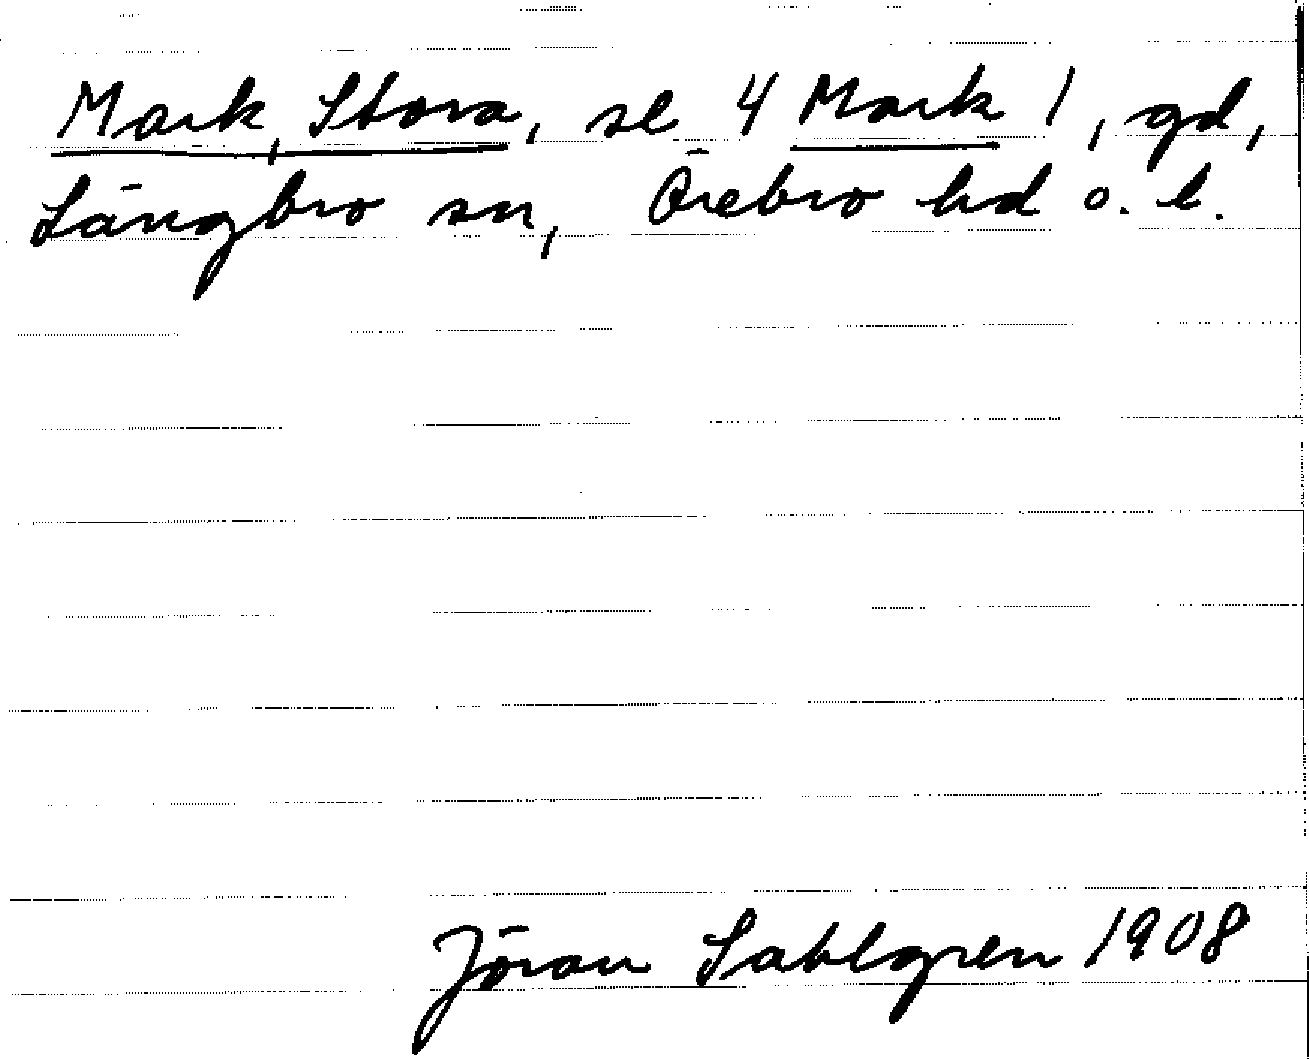 Mark, Stora, se 4 Mark 1, gd,
Längbro sn, Örebro hd o. l.
Jöran Sahlgren 1908